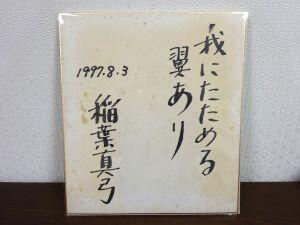 我にたためる
翼あり
1997.8.3
稲葉真弓